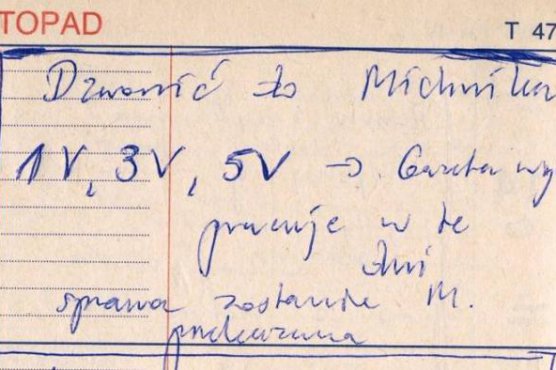 TOPAD T 47
Dzwonić do Michnika
1 V, 3 V, 5 V → Gazeta wy
pracuje w te
dni
sprawa zostanie M.
przekazana